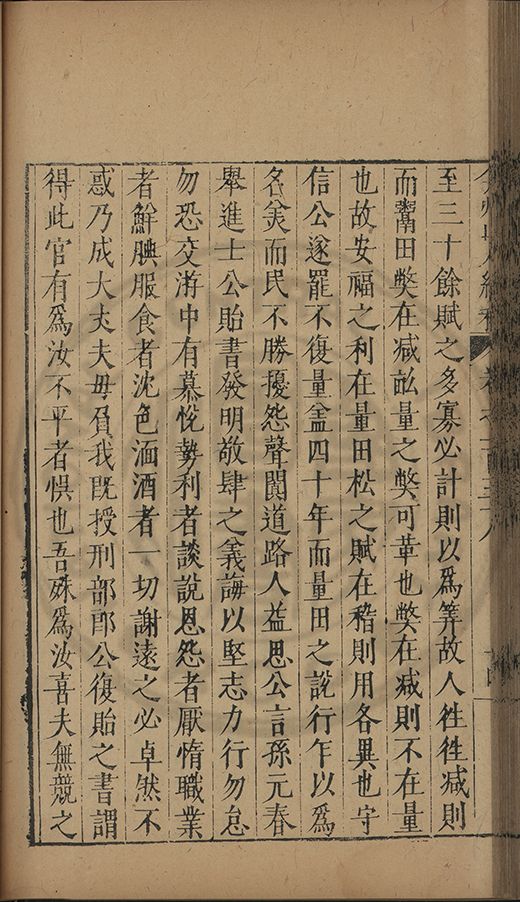 至三十餘賦之多寡必計則以爲筭故人徃徃减則
而鬻田弊在减訟量之獘可革也弊在减則不在量
也故安福之利在量田松之賦在稽則用各異也守
信公遂罷不復量盖四十年而量田之說行乍以爲
名美而民不勝擾怨聲闐道路人益思公言孫元春
舉進士公貽書發明敬肆之義誨以堅志力行勿怠
勿恐交游中有慕悅勢利者談說恩怨者厭惰職業
者鮮腆服食者沈色湎酒者一切謝遠之必卓然不
惑乃成大丈夫毋負我既授刑部郎公復貽之書謂
得此官有爲汝不平者惧也吾殊爲汝喜夫無競之